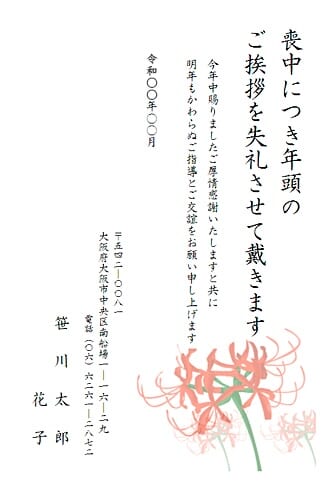 喪中につき年頭の
ご挨拶を失礼させて戴きます
今年中賜りましたご厚情感謝いたしますと共に
明年もかわらぬご指導とご交誼をお願い申し上げます
令和〇〇年〇〇月
〒五四二―〇〇八一
大阪府大阪市中央区南船場一―一六―二九
電話(〇六)六二六一―二八七二
笹川太郎
花子